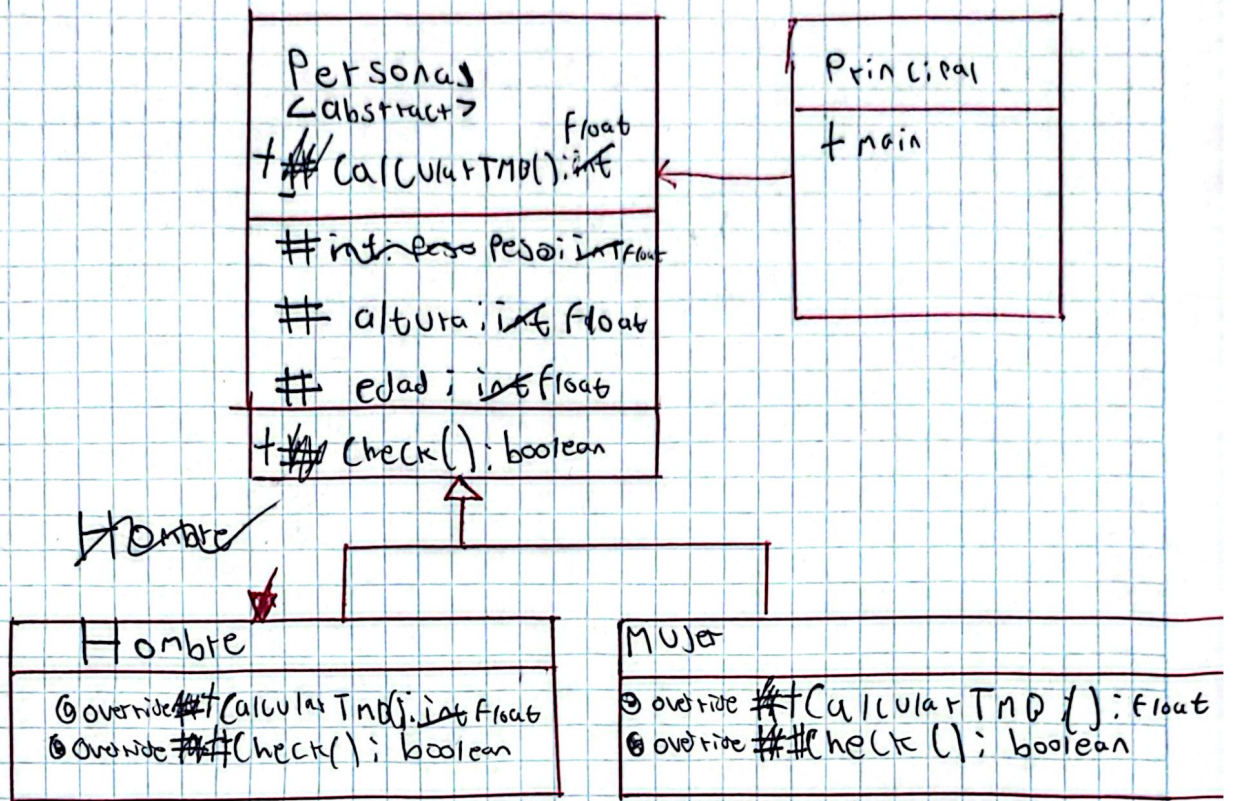 Personas
<abstract>
+ CalcularTMB(): int float
# int: peso peso: int float
# altura: int float
# edad: int float
+ Check(): boolean
Principal
+ main
Hombre
Hombre
@override + CalcularTMB(): int float
@override # Check(): boolean
Mujer
@override + CalcularTMB(): float
@override # Check(): boolean